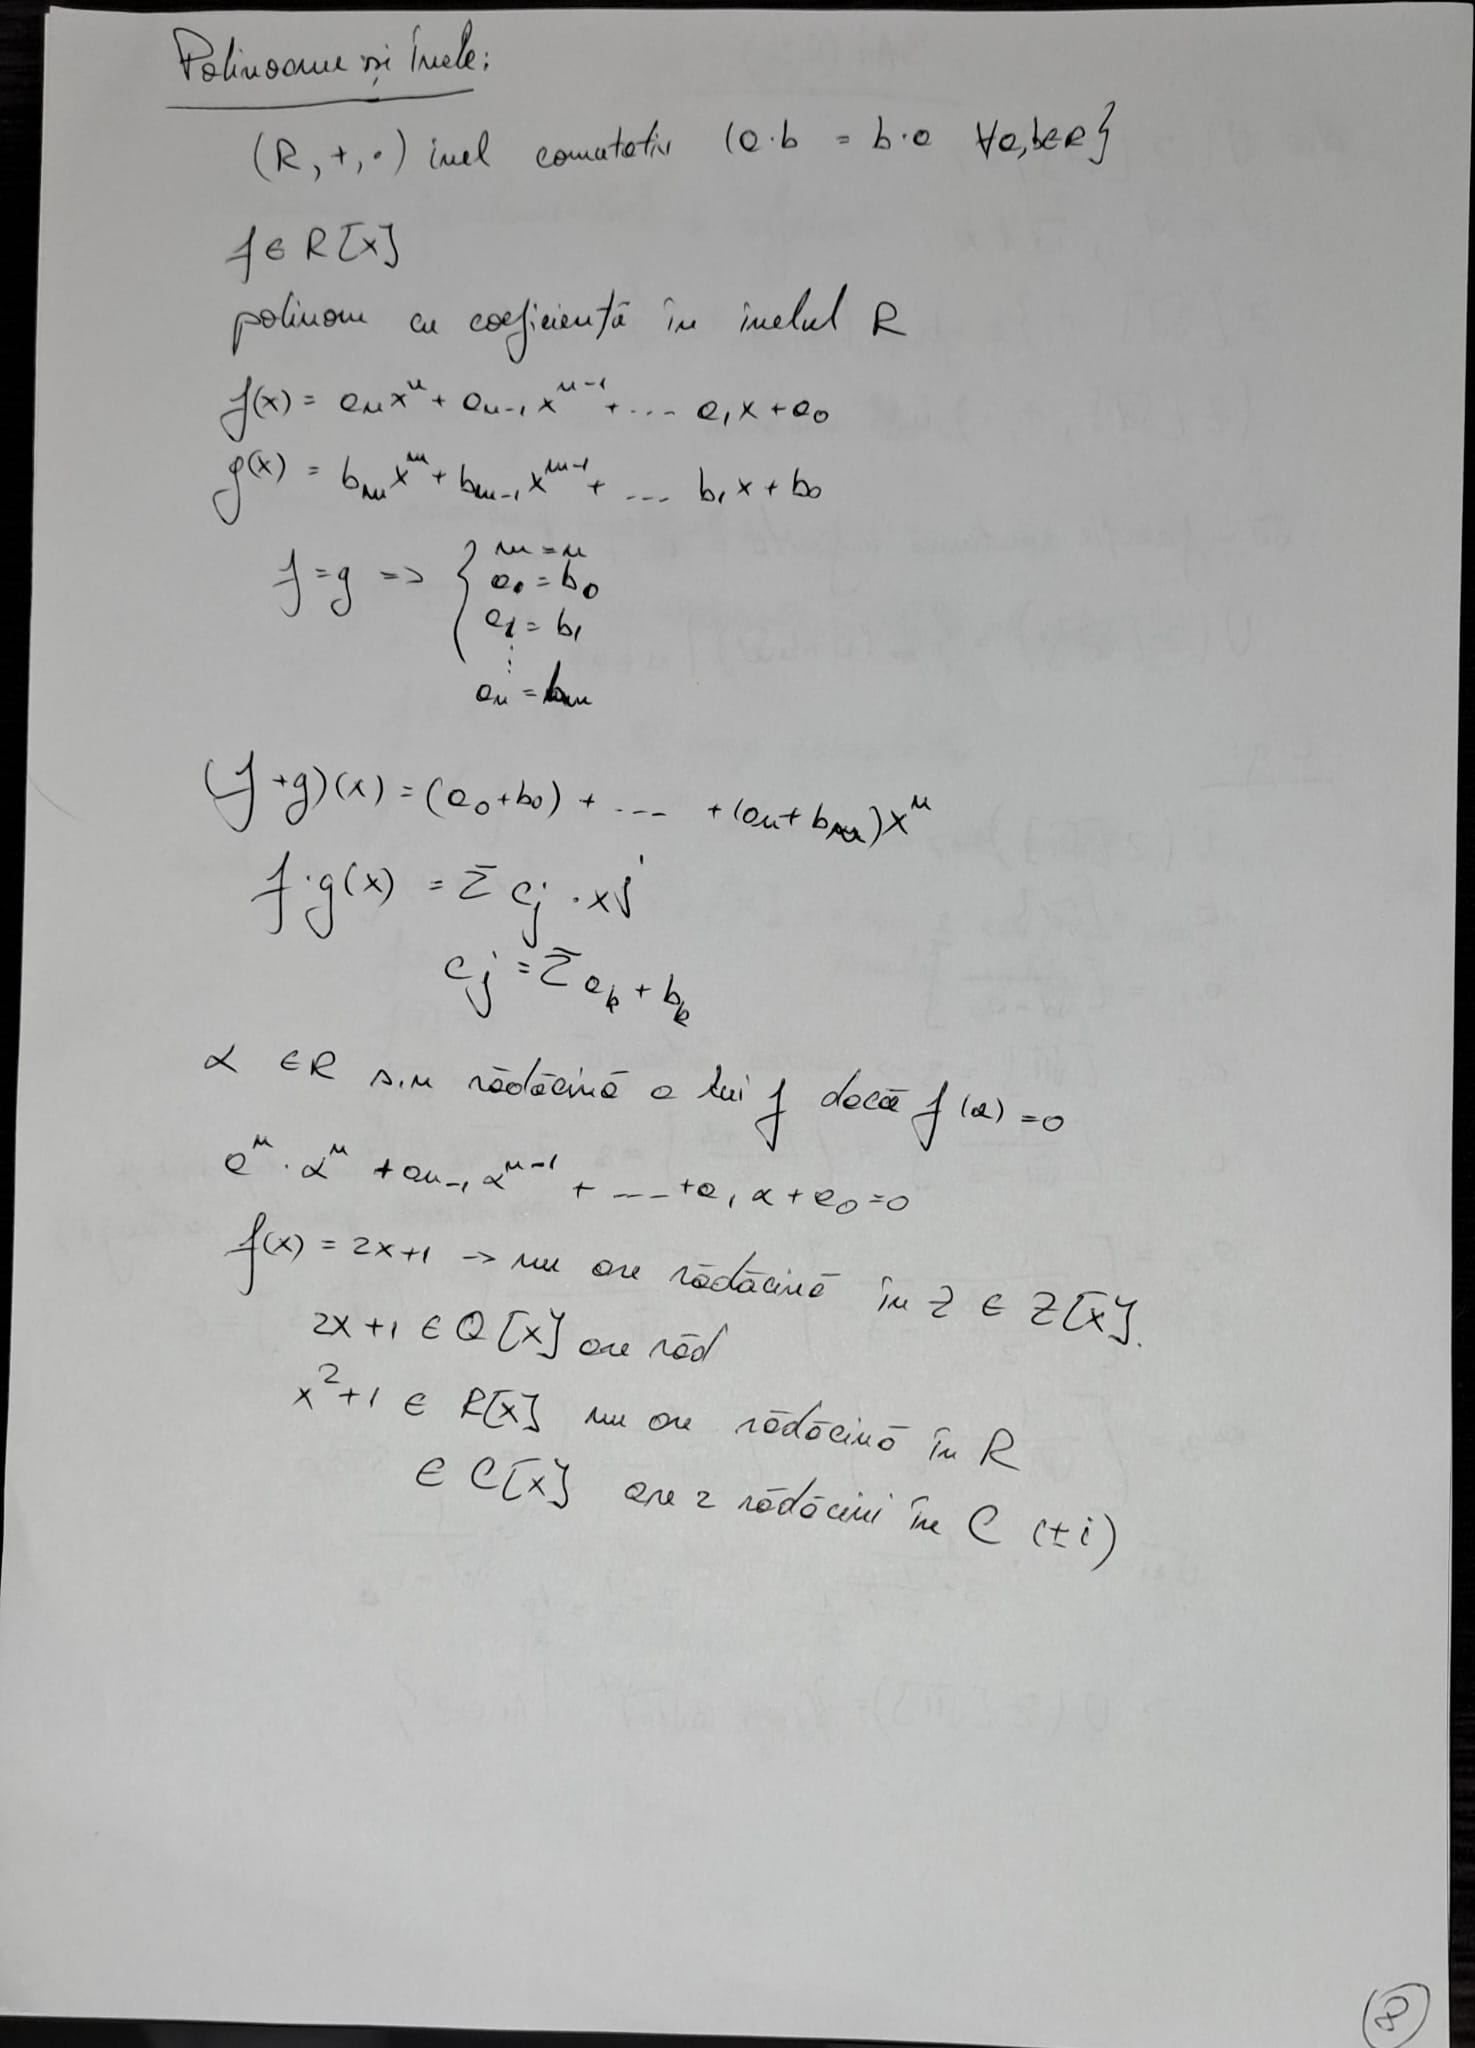 Polinoame și Inele:
(R, +, ·) inel comutativ (a·b = b·a ∀a,b∈R}
f ∈ R[x]
polinom cu coeficiență în inelul R
f(x) = aₙxⁿ + aₙ₋₁xⁿ⁻¹ + .... a₁x + a₀
g(x) = bₘxᵐ + bₘ₋₁xᵐ⁻¹ + .... b₁x + b₀
f = g => { m = n
a₀ = b₀
a₁ = b₁
⋮
aₙ = bₘ
(f+g)(x) = (a₀+b₀) + .... + (aₙ+bₘ)xⁿ
f·g(x) = Σ cⱼ · xʲ
cⱼ = Σ aₖ + bₖ
α ∈ R s.n rădăcină a lui f dacă f(α) = 0
aⁿ · αⁿ + aₙ₋₁ αⁿ⁻¹ + .... + a₁ α + a₀ = 0
f(x) = 2x+1 -> nu are rădăcină în Z ∈ Z[x].
2x+1 ∈ Q[x] are răd
x²+1 ∈ R[x] nu are rădăcină în R
∈ C[x] are 2 rădăcini în C (±i)
8